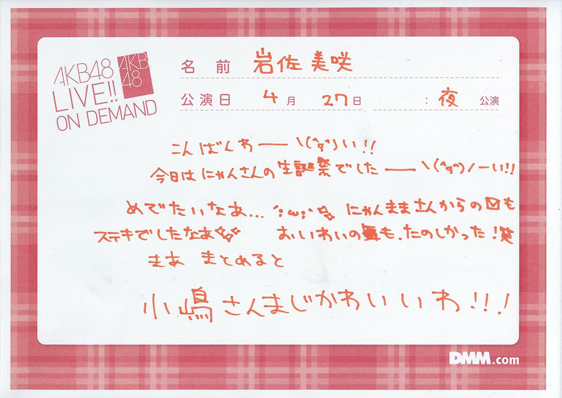 AKB48
LIVE!!
ON DEMAND
AKB
48
名 前 岩佐美咲
公演日 4月 27日 : 夜 公演
こんばんわー ヽ(^q^)い!!
今日はにゃんさんの生誕祭でした ー ヽ(^q^)ノーい!!
めでたいなあ... ;ω; にゃんままさんからの
ステキでしたなあ おいわいの も、たのしかった!笑
まあ まとめると
小嶋さんまじかわいいわ!!!
DMM.com